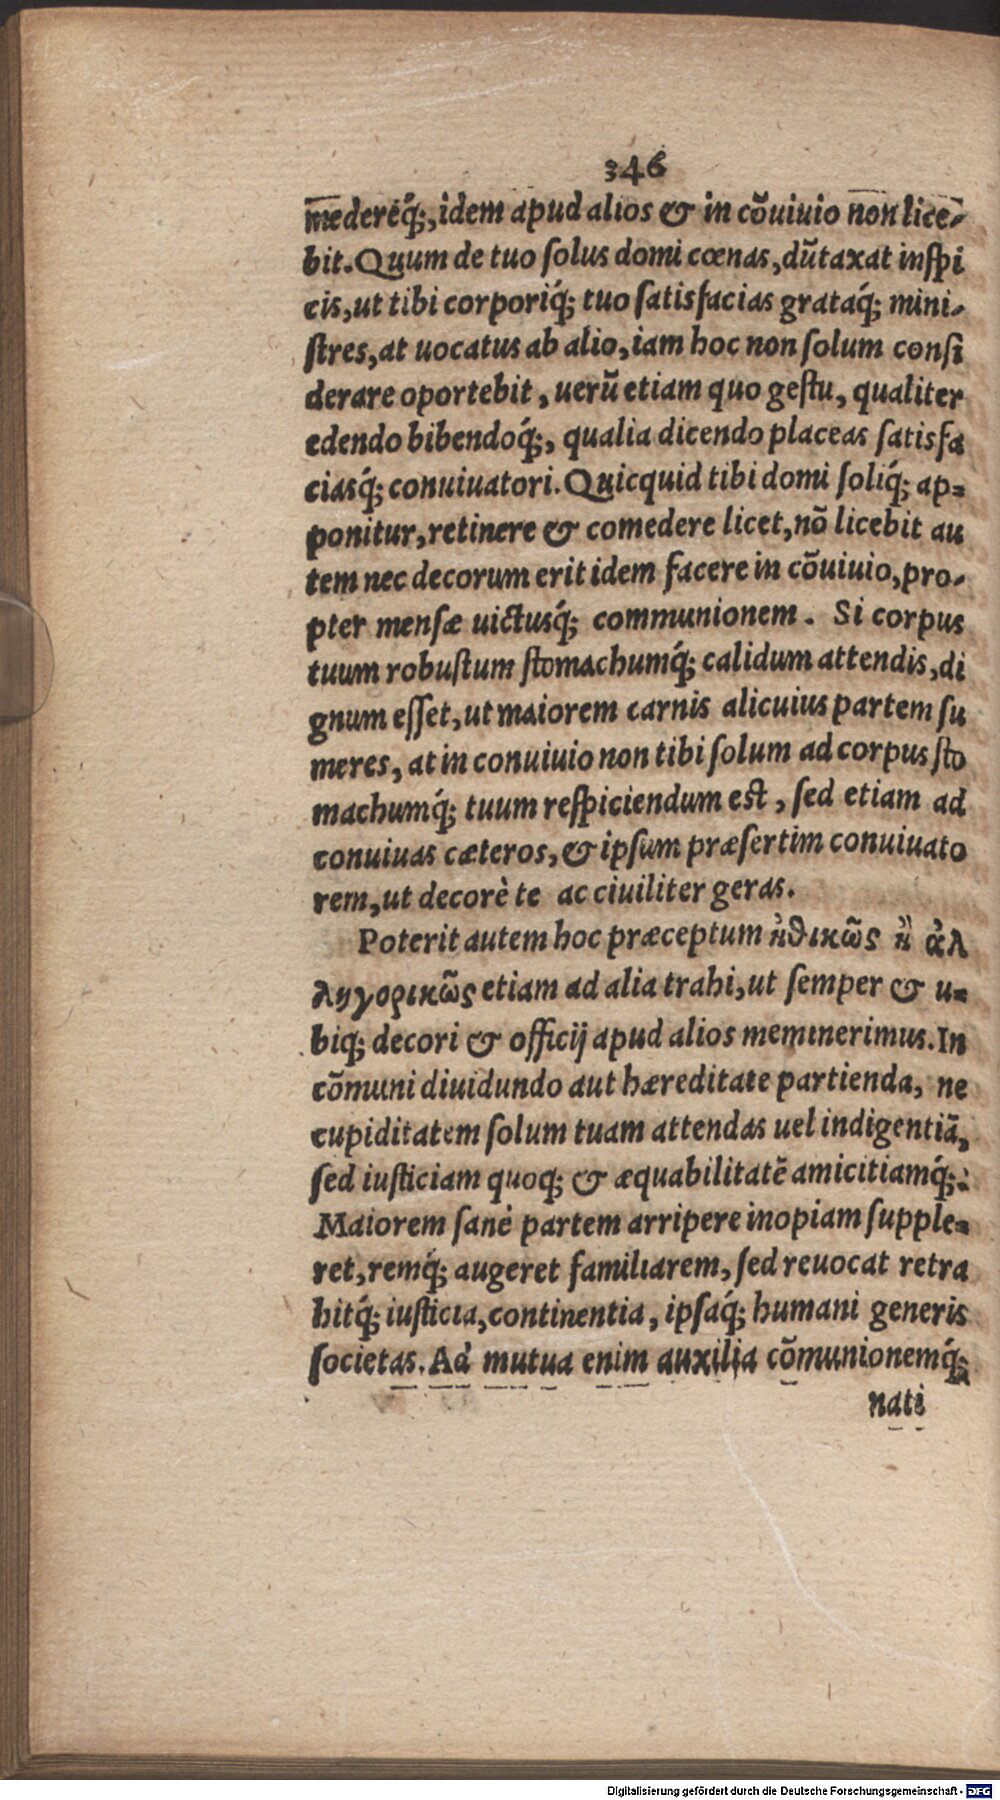 346
mederéq́;, idem apud alios & in cõuiuio non lice-
bit. Quum de tuo solus domi cœnas, dũtaxat inspi
cis, ut tibi corporiq́; tuo satisfacias grataq́; mini-
stres, at uocatus ab alio, iam hoc non solum consi
derare oportebit, uerũ etiam quo gestu, qualiter
edendo bibendoq́;, qualia dicendo placeas satisfa
ciasq́; conuiuatori. Quicquid tibi domi soliq́; ap-
ponitur, retinere & comedere licet, nõ licebit au
tem nec decorum erit idem facere in cõuiuio, pro-
pter mensæ uictusq́; communionem. Si corpus
tuum robustum stomachumq́; calidum attendis, di
gnum esset, ut maiorem carnis alicuius partem su
meres, at in conuiuio non tibi solum ad corpus sto
machumq́; tuum respiciendum est, sed etiam ad
conuiuas cæteros, & ipsum præsertim conuiuato
rem, ut decorè te ac ciuiliter geras.
Poterit autem hoc præceptum ἠθικῶς ἢ ἀλ
ληγορικῶς etiam ad alia trahi, ut semper & u-
biq; decori & officij apud alios meminerimus. In
cõmuni diuidundo aut hæreditate partienda, ne
cupiditatem solum tuam attendas uel indigentiã,
sed iusticiam quoq; & æquabilitatẽ amicitiamq́;.
Maiorem sanè partem arripere inopiam supple-
ret, remq́; augeret familiarem, sed reuocat retra
hitq́; iusticia, continentia, ipsaq́; humani generis
societas. Ad mutua enim auxilia cõmunionemq́;
nati
Digitalisierung gefördert durch die Deutsche Forschungsgemeinschaft - DFG